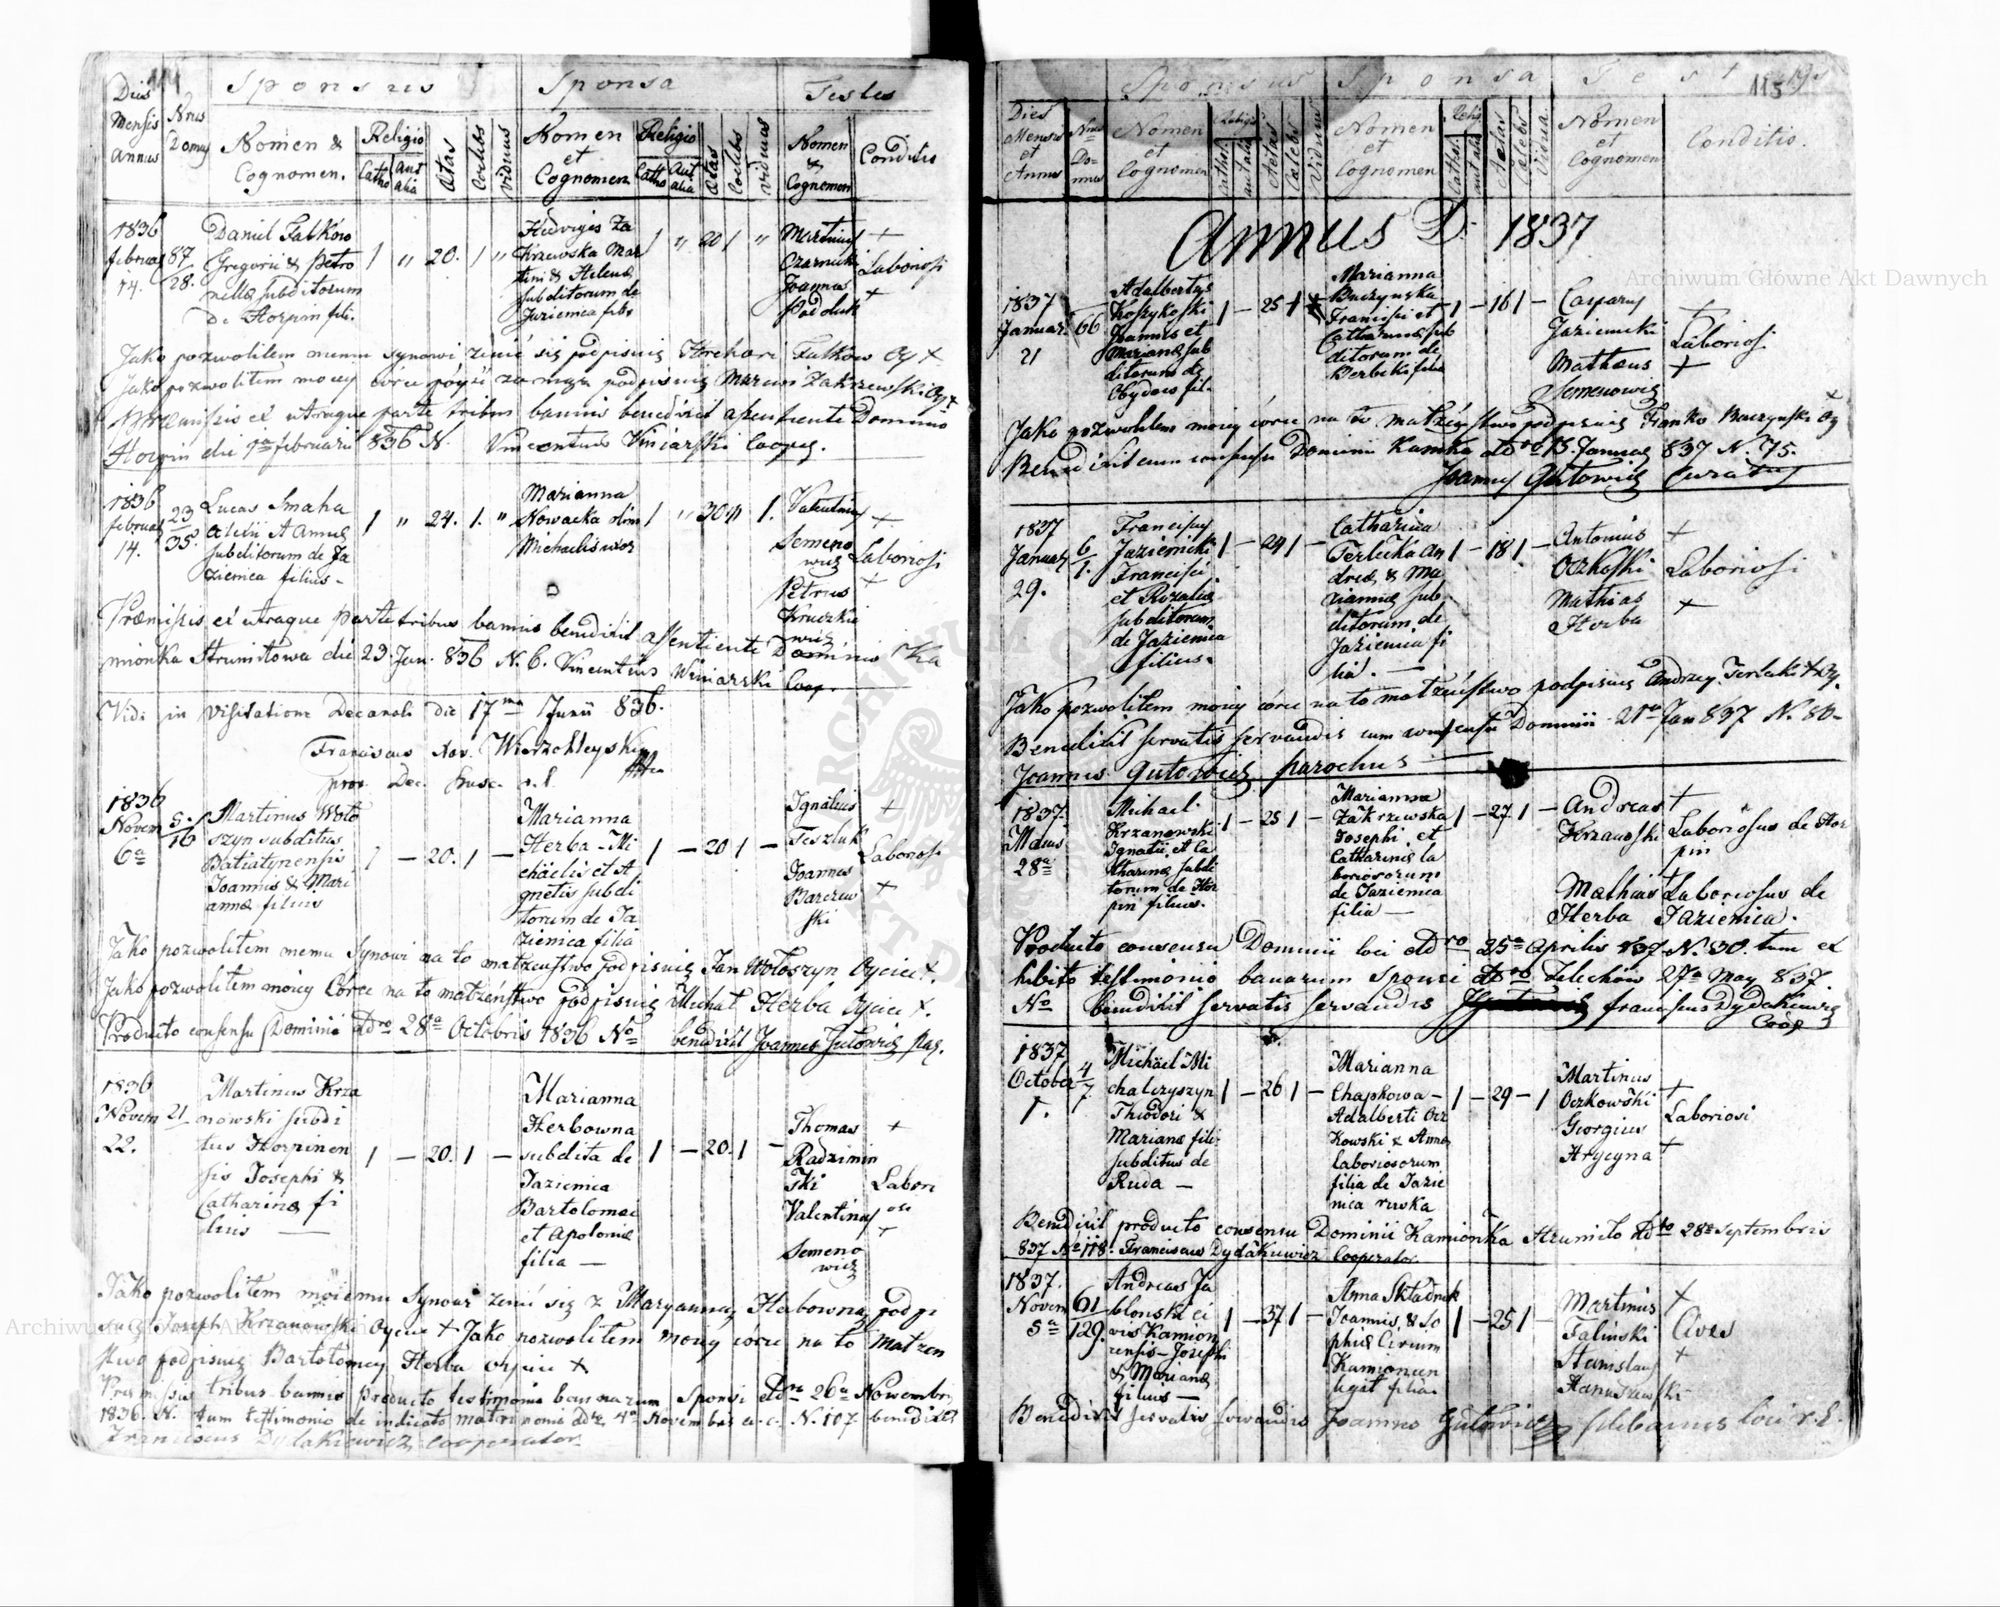 114
Sponsus Sponsa Testes
Dies Mensis Annus
Nrus Domus
Nomen & Cognomen.
Religio
Catho
Aut alia
Ætas
Coelebs
Viduus
Nomen et Cognomen
Religio
Catho
Aut alia
Ætas
Coelebs
Viduus
Nomen & Cognomen
Conditio
1836
februar
14.
87
28.
Daniel Falków
Gregorii & Petro
nellæ subditorum
de Horpin fili.
1 " 20. 1 "
Hedvigis Za
Krzewska Mar
tini & Helenæ
subditorum de
Jazienica filia
1 " 20 1 "
Martinus
Czarnecki
Joannes
+
Laboriosi
+
Jako pozwolilem memu synowi żenić się podpisuię Hrehori Falków Oy +
Jako pozwolitem mojey córce póyść za mąż podpisuię Marcin Zakrzewski Oy +
Præmissis ex utraque parte tribus bannis benedixit assentiente Dominio
Horpin die 7ma februarii 836 N. Vincentius Winiarski Cooper.
1836
februar
14.
23
35.
Lucas Smaha
Alexii & Annæ
subditorum de Ja
zienica filius -
1 " 24. 1. "
Marianna
Nowacka olim
Michaelis uxor
1 " 30 1.
Valentinus
Semeno
wicz
Petrus
Kruczkie
wicz
+
Laboriosi
+
Præmissis ex utraque parte tribus bannis benedixit assentiente Dominio Ka
mionka Strumiłowa die 23 Jan. 836 N. 6. Vincentius Winiarski Coop.
Vidi in visitatione Decanali die 17ma Junii 836.
Franciscus Wierzchleyski
1836
Novem
6a
5.
16
Martinus Woło
szyn subditus
Batiatynensis
Joannis & Mari
annæ filius
1 - 20. 1 -
Marianna
Herba - Mi
chäelis et A
gnetis subdi
torum de Ja
zienica filia
1 - 20 1 -
Ignatius
Teszluk
Joannes
Barczew
ski
+
Laboriosi
+
Jako pozwolitem memu Synowi na to matzeństwo podpisuię Jan Wołoszyn Oyciec +.
Jako pozwolitem moiey Corce na to matżeństwo podpisuię Michał Herba Oyciec +.
Producto consensu Dominii ddto 28a Octobris 1836 No benedixit Joannes Gutowicz Par.
1836
Novem
22.
21
Martinus Krza
nowski subdi
tus Horpinen
sis Josephi &
Catharinæ fi
lius —
1 - 20. 1 -
Marianna
Herbowna
subdita de
Jazienica
Bartolomæi
et Apoloniæ
filia —
1 - 20. 1 -
Thomas
Radzimin
ski
Valentinus
Semeno
wicz
+
Labori
osi
+
Jako pozwolitem moiemu Synowi żenić się z Maryanną Herbowną podpi
suię Joseph Krzanowski Oyciec + Jako pozwolitem moiey córce na to Matzen
stwo podpisuię Bartołomey Herba oyciec +
Præmissis tribus bannis producto testimonio bannorum Sponsi ddto 26a Novembris
1836. N. tum testimonio de indicato matrimonio ddto 4a Novembris a. c. N. 107 benedixit
Franciscus Dydakiewicz cooperator.
115
Sponsus Sponsa Test
Dies Mensis et Annus
Nrus Domus
Nomen et Cognomen
Religio
Cathol.
aut alia
Aetas
Cælebs
Viduus
Nomen et Cognomen
Relig
Cathol.
aut alia
Aetas
Cælebs
Vidua.
Nomen et Cognomen
Conditio.
Annus D. 1837
1837
Januar.
21
66
Adalbertus
Koszykoski
Joannis et
Marianæ sub
ditorum de
Obydow fil.
1 - 25 1
Marianna
Buczynska
Francisci et
Catharinæ sub
ditorum de
Derbeki filia
1 - 16 1 -
Casparus
Jazienicki
Matheus
Semenowicz
+
Laboriosi
+
Jako pozwolilem moiey córce na to matżeństwo podpisuię Franko Buczynski Oy +
Benedixit cum consensu Dominii Kamka ddto 13. Januar 837 N. 75.
Joannes Gutowicz Curatus
1837
Januar
29.
6
1.
Franciscus
Jazienicki
Francisci
et Rozaliæ
subditorum
de Jazienica
filius.
1 - 24 1 -
Catharina
Terlecka An
dreæ & Ma
riannæ sub
ditorum de
Jazienica fi
lia. —
1 - 18 1 -
Antonius
Oczkoski
Mathias
Herba
+
Laboriosi
+
Jako pozwolitem moiey córce na to matzeństwo podpisuię Andrzey Terlecki + Oy.
Benedixit servatis servandis cum consensu Dominii 21a Jan 837 N. 80-
Joannes Gutowicz parochus
1837.
Maius
28a
Michael
Krzanowski
Ignatii et Ca
tharinæ subdi
torum de Hor
pin filius.
1 - 25 1 -
Marianna
Zakrzewska
Josephi et
Catharinæ la
boriosorum
de Jazienica
filia —
1 - 27 1 -
Andreas
Krzanoski
Mathias
Herba
+
Laboriosus de Hor
pin
+
Laboriosus de
Jazienica.
Producto consensu Dominii loci ddto 25a Aprilis 837 N. 30. tum ex
hibito testimonio banorum Sponsi ddto Zelechów 27a May 837
No benedixit servatis servandis Franciscus Dydakiewicz
Coop
1837
October
1.
4
7.
Michäel Mi
chalczyszyn
Theodori &
Marianæ fili
subditus de
Ruda —
1 - 26 1 -
Marianna
Chapkowa -
Adalberti Ocz
kowski & Annæ
laboriosorum
filia de Jazie
nica ruska
1 - 29 - 1
Martinus
Oczkowski
Georgius
Hrycyna
+
Laboriosi
+
Benedixit producto consensu Dominii Kamionka Strumiło ddto 28a Septembris
837 No 118. Franciscus Dydakiewicz Cooperator.
1837.
Novem
5a
61
129.
Andreas Ja
blonski ci
vis Kamion
censis - Josephi
& Marianæ
filius —
1 - 37 1 -
Anna Składnik
Joannis & So
phiæ Civium
Kamionen
legit filia.
1 - 25 1 -
Martinus
Faliński
Stanislaus
Hanuszewski
+
Cives
+
Benedixit servatis servandis Joannes Gutowicz plebanus loci r. l.
Archiwum Główne Akt Dawnych